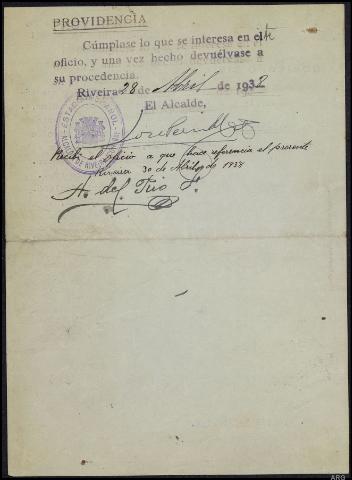 PROVIDENCIA
Cúmplase lo que se interesa en el
oficio, y una vez hecho devuélvase a
su procedencia.
Riveira 28 de Abril de 193
El Alcalde,
ESTADO ESPAÑOL
Recibí el oficio a que hace referencia el presente
Riveira 30 de Abril de 193
A. del Río
ARG